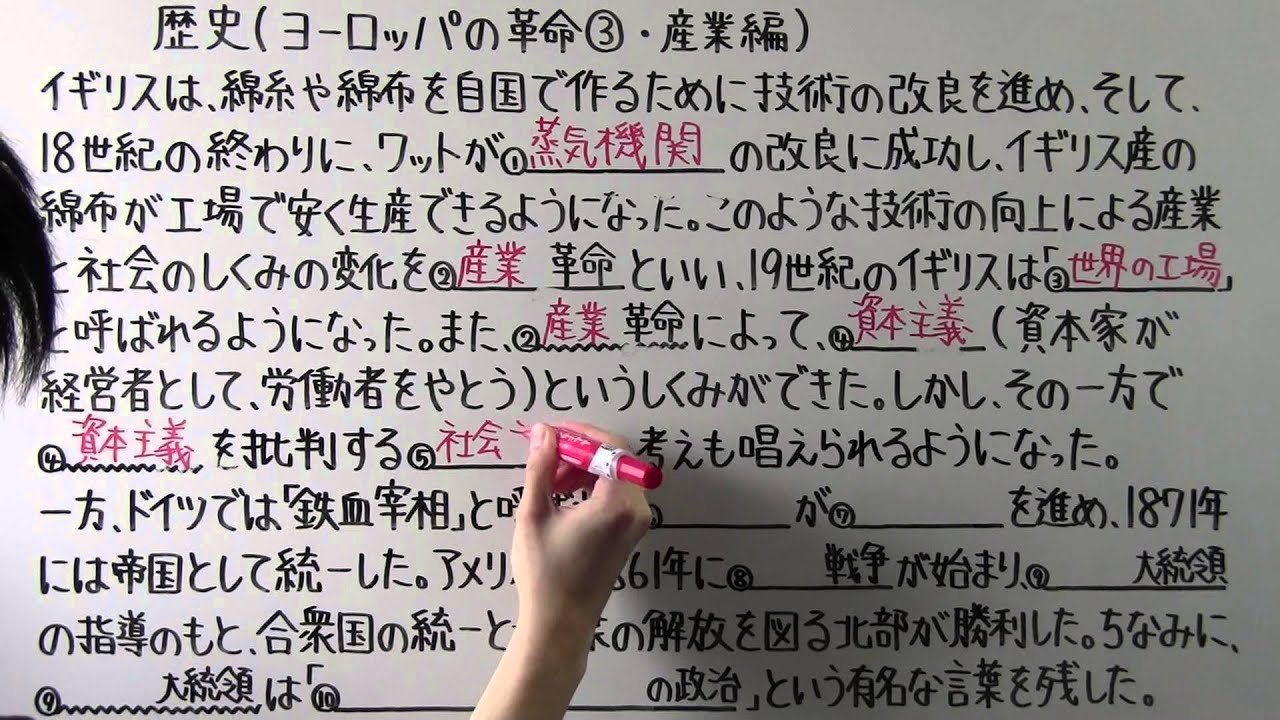 歴史(ヨーロッパの革命③・産業編)
イギリスは、綿糸や綿布を自国で作るために技術の改良を進め、そして、
18世紀の終わりに、ワットが①蒸気機関の改良に成功し、イギリス産の
綿布が工場で安く生産できるようになった。このような技術の向上による産業
と社会のしくみの変化を②産業 革命といい、19世紀のイギリスは「③世界の工場」
と呼ばれるようになった。また、②産業 革命によって、④資本主義(資本家が
経営者として、労働者をやとう)というしくみができた。しかし、その一方で
④資本主義を批判する⑤社会 考えも唱えられるようになった。
一方、ドイツでは「鉄血宰相」と呼 が⑦ を進め、1871年
には帝国として統一した。アメリ 61年に⑧ 戦争が始まり、⑨ 大統領
の指導のもと、合衆国の統一と の解放を図る北部が勝利した。ちなみに、
⑨ 大統領は「⑩ の政治」という有名な言葉を残した。